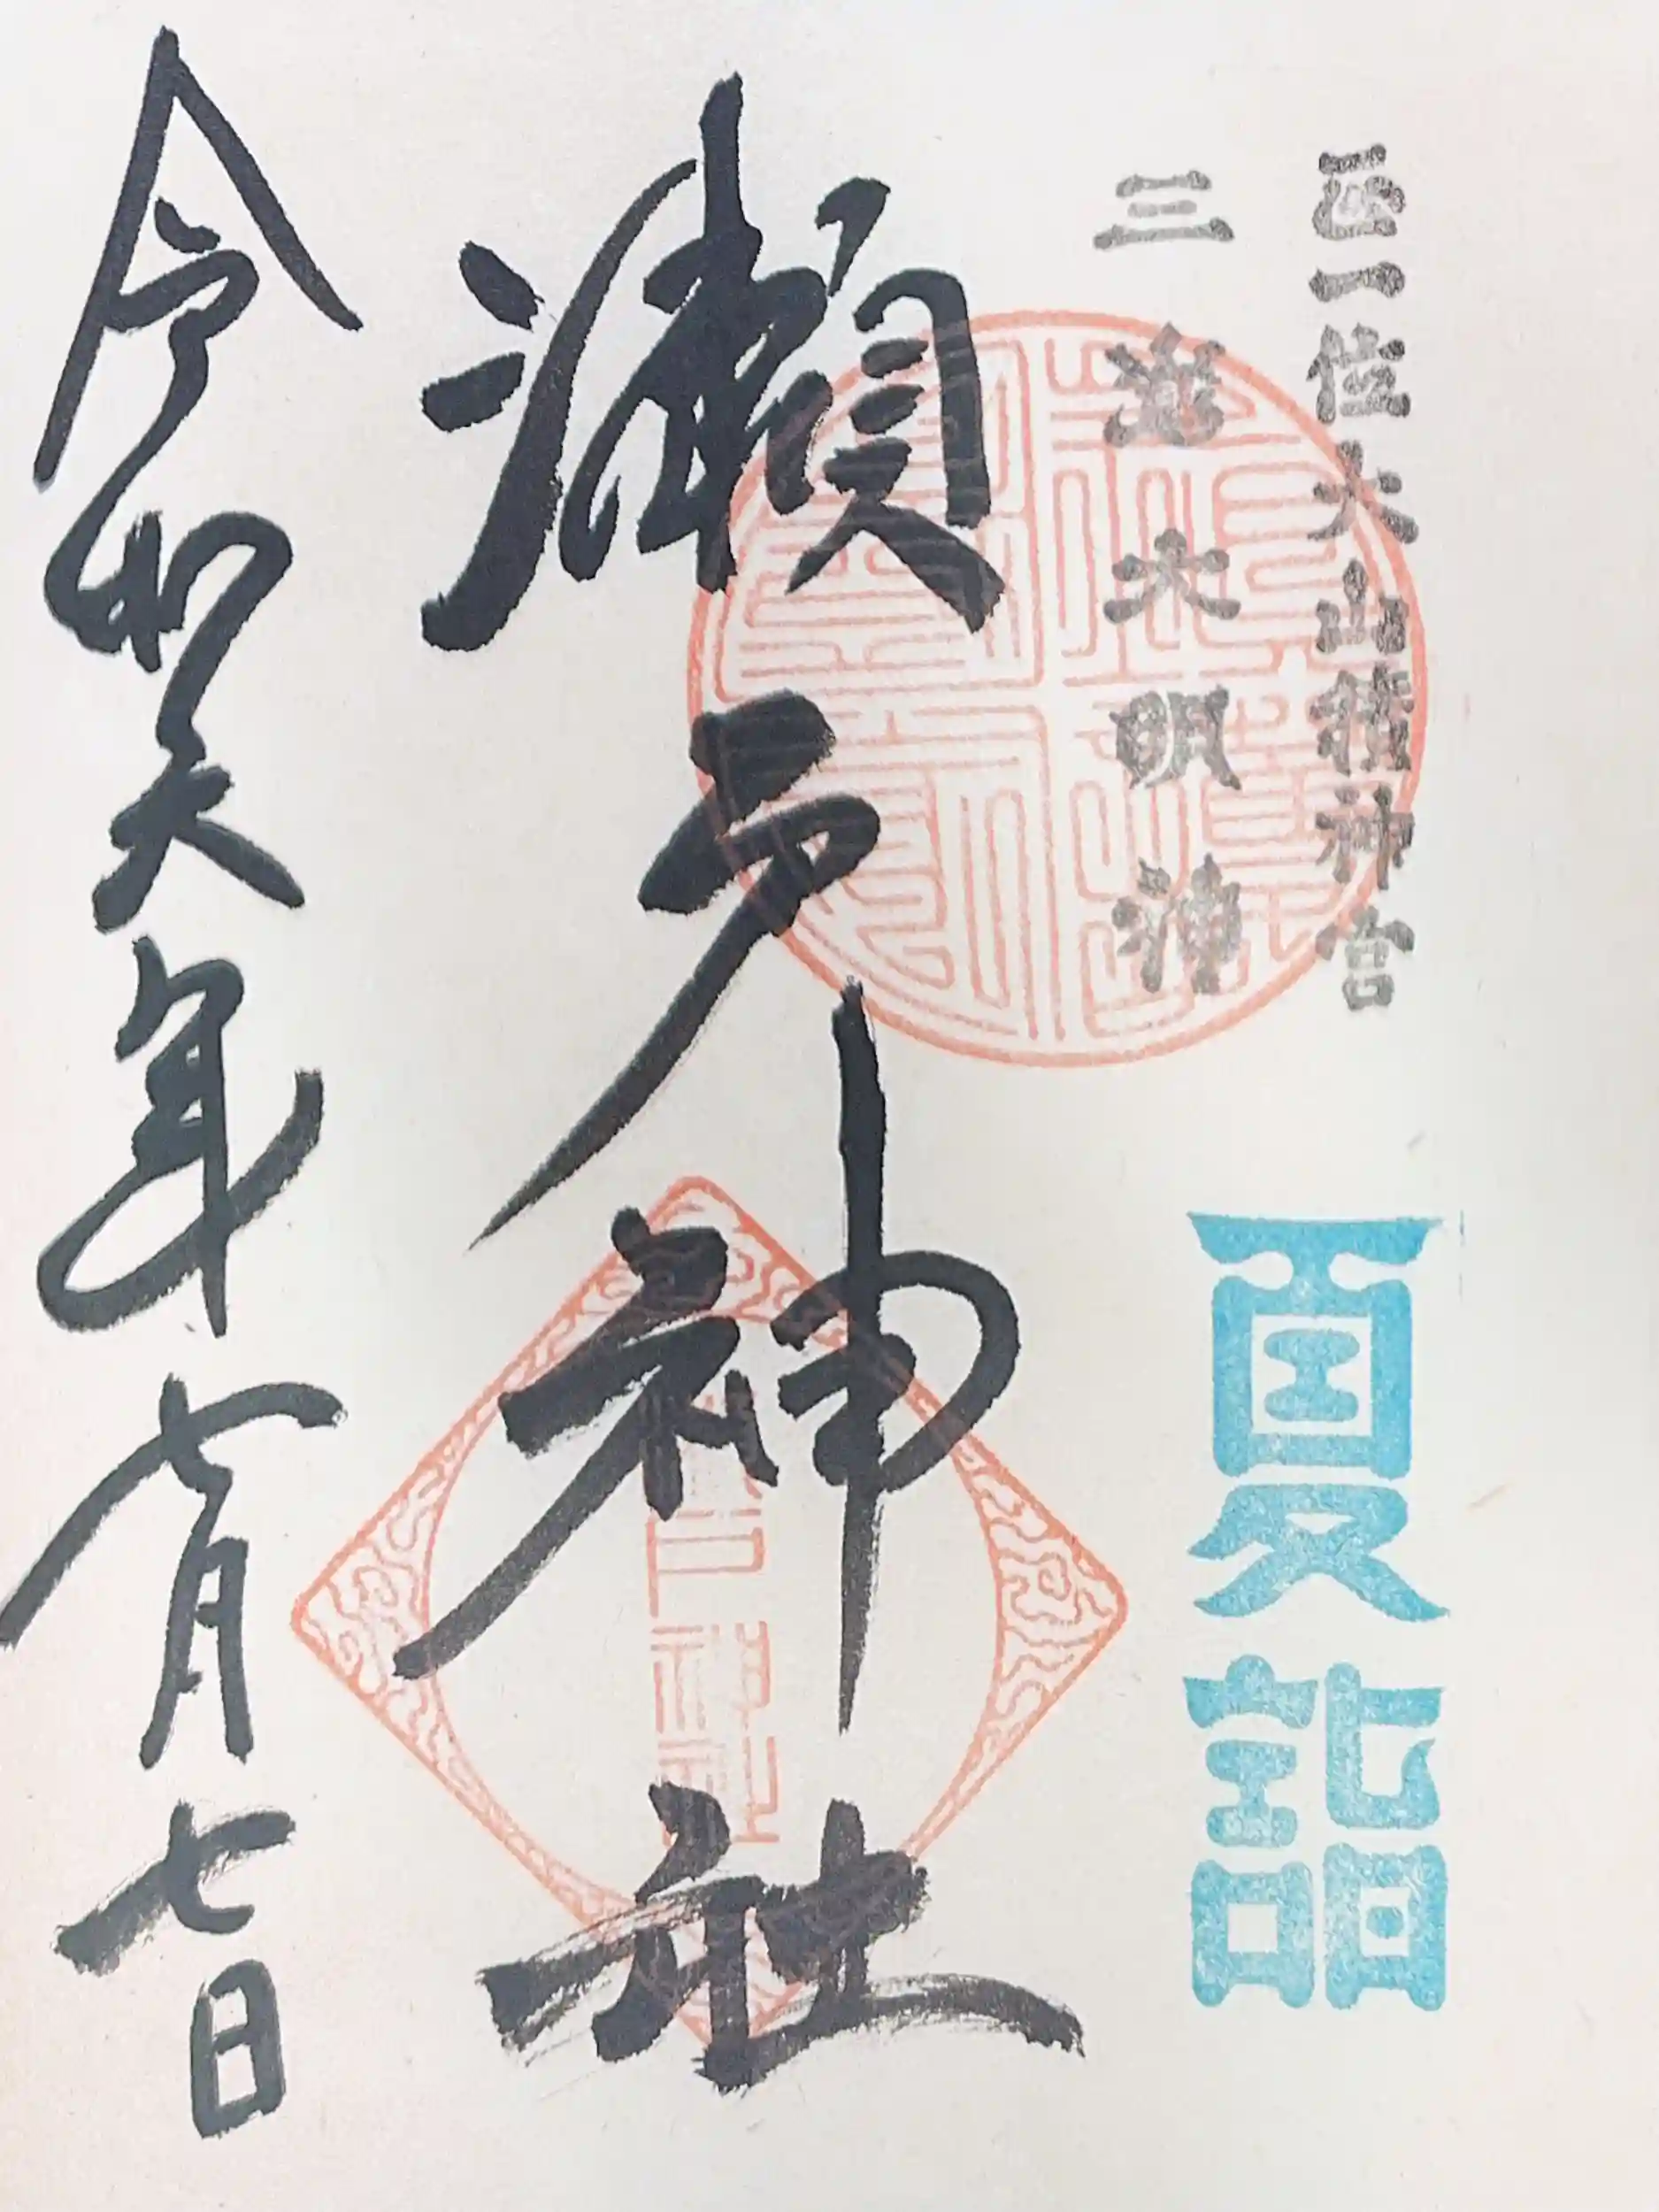 正一位大山積神宮
三嶌大明神
夏詣
瀬戸神社
令和六年七月七日